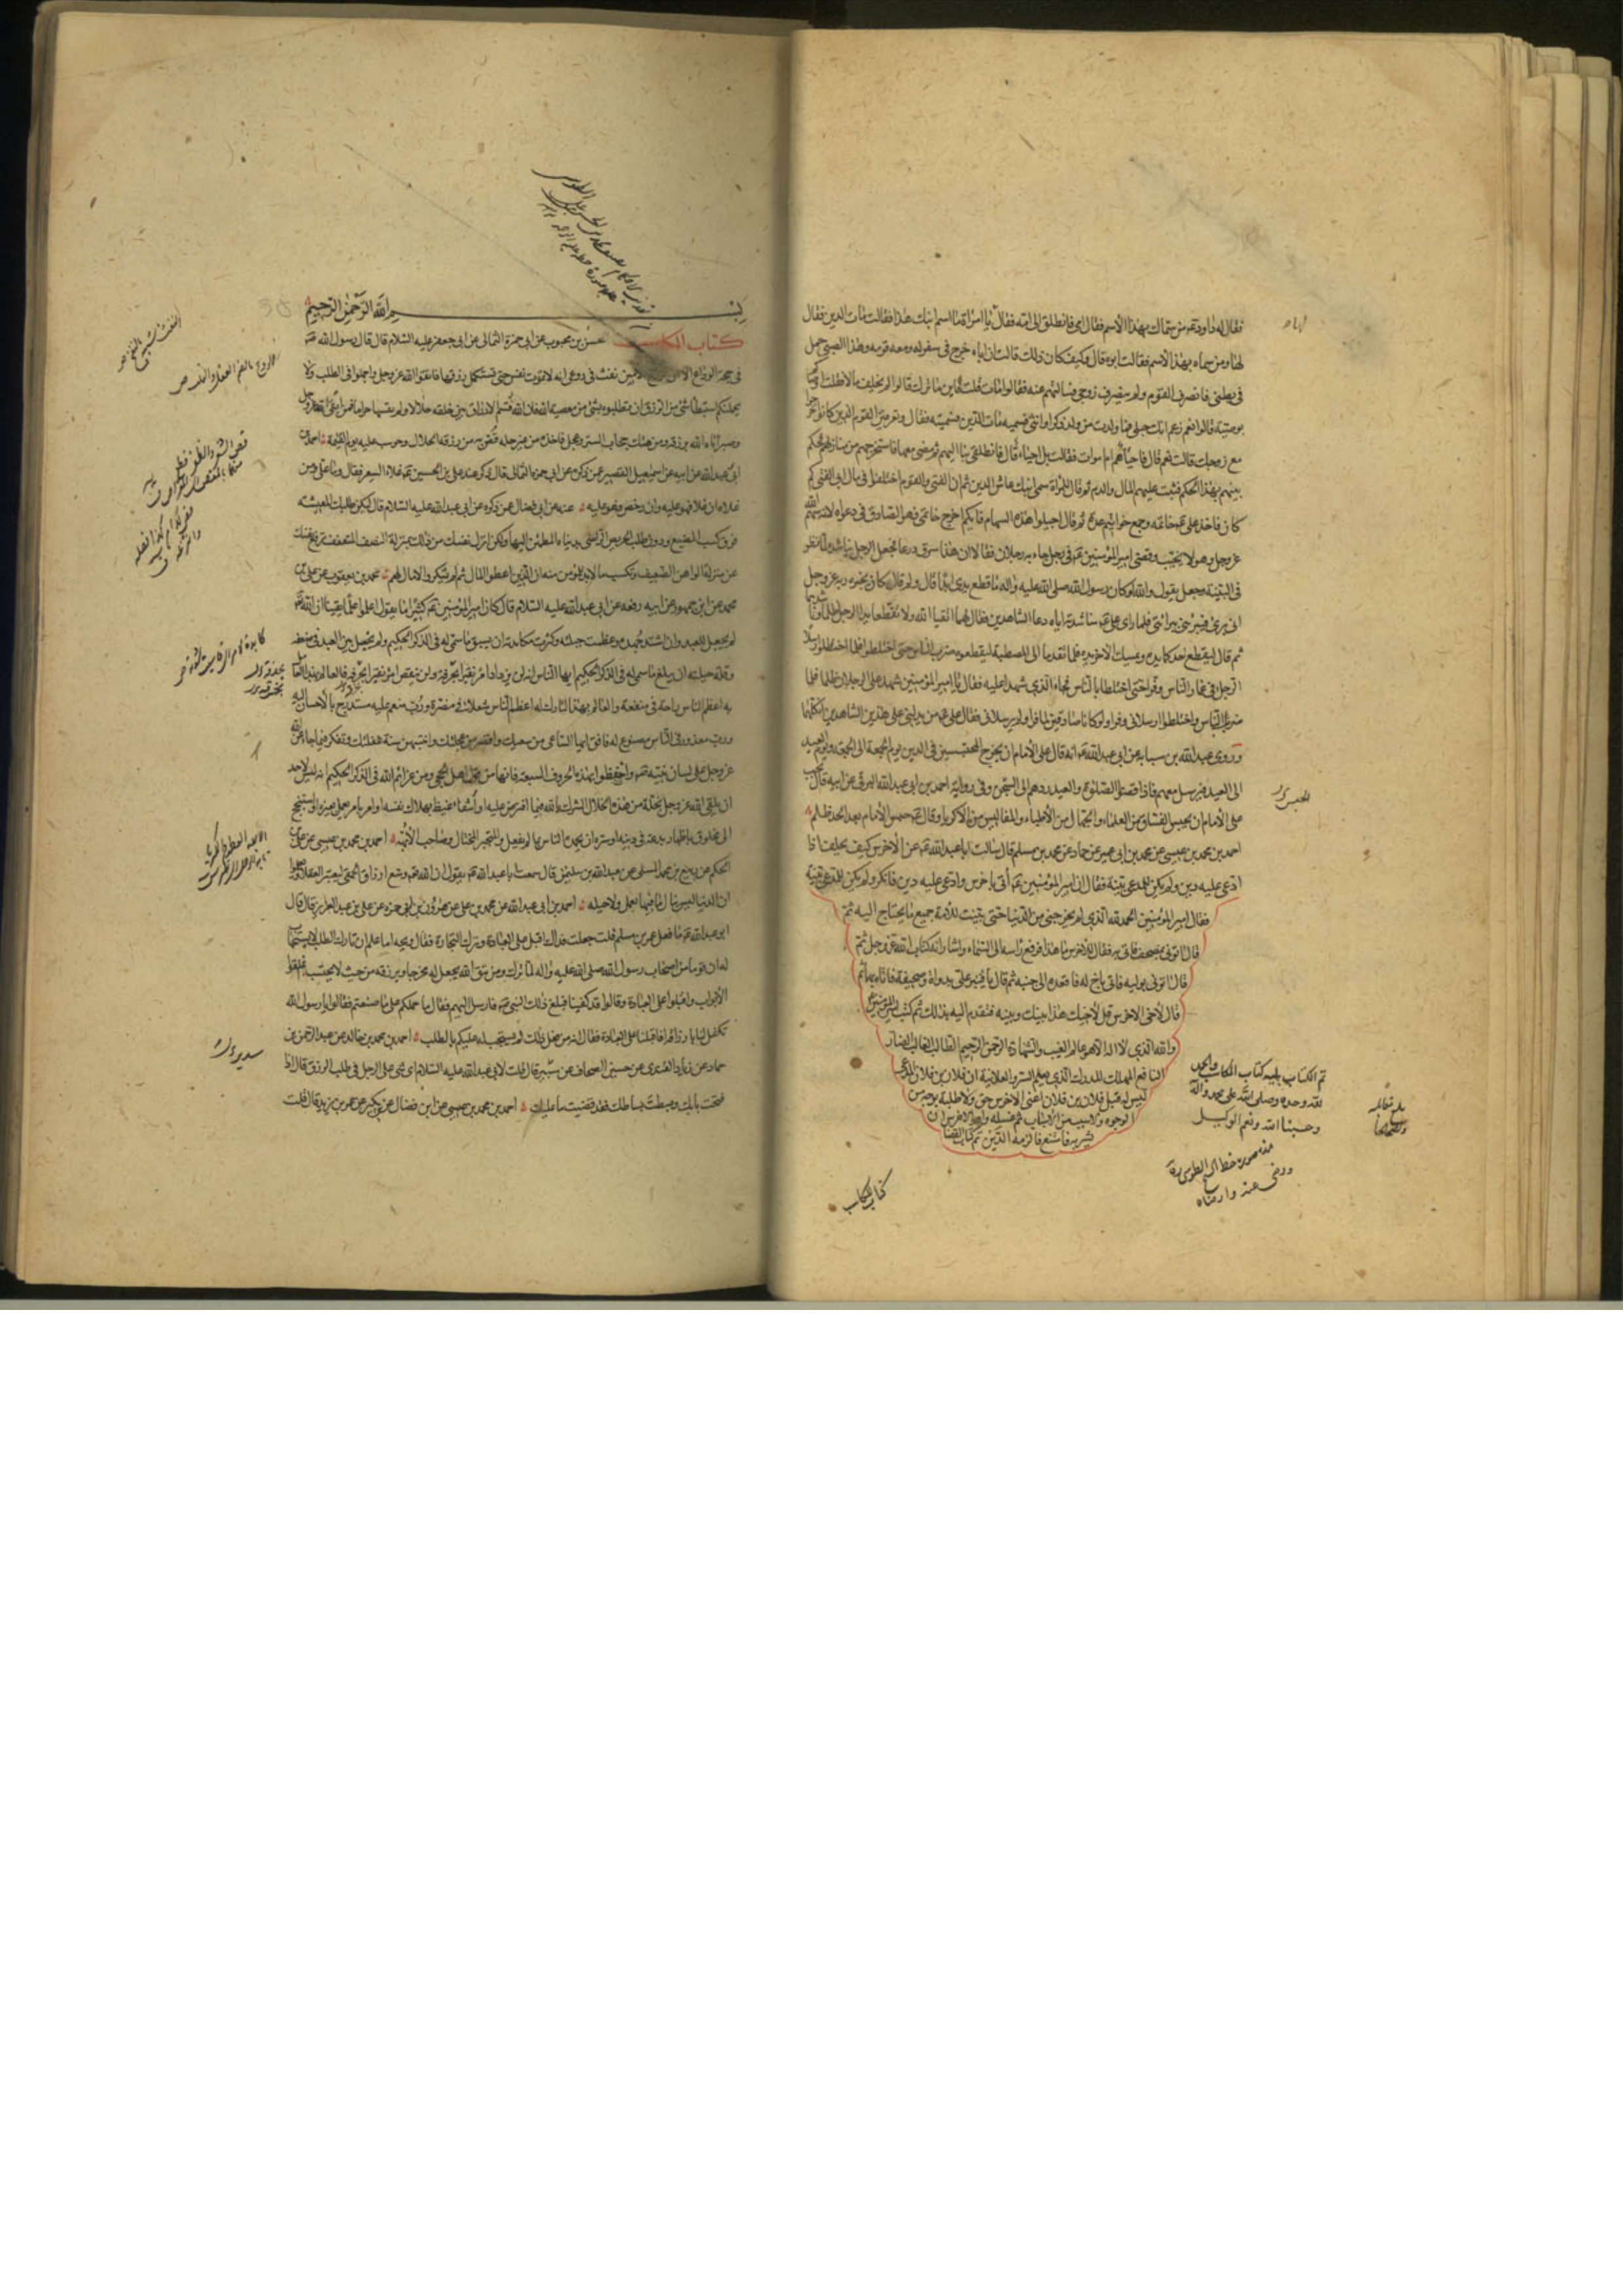 فقال له داود عم من سماك بهذا الاسم فقال امي فانطلق الى امه فقال يا امراة ما اسم ابنك هذا فقالت مات الدين فقال
لها ومن سماه بهذا الاسم فقالت ابوه قال وكيف كان ذلك قالت ان اباه خرج في سفر له ومعه قوم وهذا الصبي حمل
في بطني فانصرف القوم ولم ينصرف زوجي فسالتهم عنه فقالوا مات قلت فاين ما ترك قالوا لم يخلف مالا فقلت
بوصية قالوا نعم زعم انك حبلى فما ولدت من ولد ذكر او انثى فسميه مات الدين فسميته فقال وتعرفين القوم الذين كانوا
مع زوجك قالت نعم قال فاحياء هم ام اموات فقالت بل احياء قال فانطلقي بنا اليهم ثم مضى معها فاستخرجهم من منازلهم فحكم
بينهم بهذا الحكم فثبت عليهم المال والدم ثم قال للمراة سمي ابنك عاش الدين ثم ان الفتى والقوم اختلفوا في مال ابي الفتى كم
كان فاخذ علي عم خاتمه وجمع خواتيم عدة ثم قال اجيلوا هذه السهام فايكم اخرج خاتمي فهو الصادق في دعواه لانه سهم الله
عز وجل وهو لا يخيب وقضى امير المؤمنين عم في رجل جاء به رجلان فقالا ان هذا سرق درعا فجعل الرجل يناشده لما نظر
في البينة وجعل يقول والله لو كان رسول الله صلى الله عليه واله ما قطع يدي ابدا قال ولم قال كان يخبره ربه عز وجل
اني بري فيبرئني ببرائتي فلما راى علي عم مناشدته اياه دعا الشاهدين فقال لهما اتقيا الله ولا تقطعا يد الرجل ظلما
ثم قال ليقطع احدكما يده ويمسك الاخر يده فلما تقدما الى المصطبة ليقطعوه ضرب الناس حتى اختلطوا فلما اختلطوا ارسلا
الرجل في غمار الناس وفرا حتى اختلطا بالناس فجاء الذي شهدا عليه فقال يا امير المؤمنين شهد علي الرجلان ظلما فلما
ضرب الناس واختلطوا ارسلاني وفرا ولو كانا صادقين لما فرا ولم يرسلاني فقال علي عم من يدلني على هذين الشاهدين انكلهما
وروى عبد الله بن سيابه عن ابي عبد الله عم انه قال على الامام ان يخرج المحتبسين في الدين يوم الجمعة الى الجمعة ويوم العيد
الى العيد فيرسل معهم فاذا قضوا الصلوة والعيد ردهم الى السجن وفي رواية احمد بن ابي عبد الله البرقي عن ابيه قال يجب
على الامام ان يحبس الفساق من العلماء والجهال من الاطباء والمفاليس من الاكرياء وقال عم حبس الامام بعد الحد ظلم
احمد بن محمد بن عيسى عن محمد بن ابي عمير عن حماد عن محمد بن مسلم قال سالت ابا عبد الله عم عن الاخرس كيف يحلف اذا
ادعي عليه دين ولم يكن للمدعي بينة فقال ان امير المؤمنين عم اتى باخرس وادعي عليه دين فانكر ولم يكن للمدعي بينة
فقال امير المؤمنين الحمد لله الذي لم يخرجني من الدنيا حتى بينت للامة جميع ما يحتاج اليه ثم
قال ائتوني بمصحف فاتي به فقال للاخرس ما هذا فرفع راسه الى السماء واشار انه كتاب الله عز وجل ثم
قال ائتوني بوليه فاتي باخ له فاقعده الى جنبه ثم قال يا قنبر علي بدواة وصحيفة فاتاه بهما ثم
قال لاخي الاخرس قل لاخيك هذا بينك وبينه فتقدم اليه بذلك ثم كتب امير المؤمنين
والله الذي لا اله الا هو عالم الغيب والشهادة الرحمن الرحيم الطالب الغالب الضار
النافع المهلك المدرك الذي يعلم السر والعلانية ان فلان بن فلان المدعي
ليس له قبل فلان بن فلان اعني الاخرس حق ولا طلبة بوجه من
الوجوه ولا سبب من الاسباب ثم غسله وامر الاخرس ان
يشربه فامتنع فالزمه الدين تم كتاب القضايا
تم الكتاب يليه كتاب المكاسب والحمد
لله وحده وصلى الله على محمد واله
وحسبنا الله ونعم الوكيل
هذه صورة خط الشيخ الطوسي ره
ورضي عنه وارضاه
بلغ مقابلة
كتاب المكاسب
بسم الله الرحمن الرحيم
كتاب المكاسب حسن بن محبوب عن ابي حمزة الثمالي عن ابي جعفر عليه السلام قال قال رسول الله ص
في حجة الوداع الا ان الروح الامين نفث في روعي انه لا تموت نفس حتى تستكمل رزقها فاتقوا الله عز وجل واجملوا في الطلب ولا
يحملنكم استبطاء شئ من الرزق ان تطلبوه بشئ من معصية الله فان الله قسم الارزاق بين خلقه حلالا ولم يقسمها حراما فمن اتقى الله عز وجل
وصبر اتاه الله برزقه ومن هتك حجاب الستر وعجل فاخذه من غير حله قص به من رزقه الحلال وحوسب عليه يوم القيمة احمد بن
ابي عبد الله عن ابيه عن اسمعيل القصير عن ذكره عن ابي حمزة الثمالي قال ذكر عند علي بن الحسين عم غلاء السعر فقال وما علي من
غلائه ان غلا فهو عليه وان رخص فهو عليه عنه عن ابن فضال عن ذكره عن ابي عبد الله عليه السلام قال ليكن طلبك المعيشة
فوق كسب المضيع ودون طلب الحريص الراضي بدنياه المطمئن اليها ولكن انزل نفسك من ذلك بمنزلة النصف المتعفف ترفع نفسك
عن منزلة الواهن الضعيف وتكسب ما لا بد للمؤمن منه ان الذين اعطوا المال ثم لم يشكروا لا مال لهم محمد بن يعقوب عن علي بن
محمد عن ابن جمهور عن ابيه رفعه عن ابي عبد الله عليه السلام قال كان امير المؤمنين عم كثيرا ما يقول اعلموا علما يقينا ان الله
لم يجعل للعبد وان اشتد جهده وعظمت حيلته وكثرت مكايدته ان يسبق ما سمي له في الذكر الحكيم ولم يخل بين العبد في ضعفه
وقلة حيلته ان يبلغ ما سمي له في الذكر الحكيم ايها الناس انه لن يزداد امرؤ نقيرا بحذقه ولن ينقص امرؤ نقيرا لخرقه فالعالم بهذا العامل
به اعظم الناس راحة في منفعة والعالم بهذا التارك له اعظم الناس شغلا في مضرة ورب منعم عليه مستدرج بالاحسان اليه
ورب معذور في الناس مصنوع له فافق ايها الساعي من سعيك واقصر من عجلتك وانتبه من سنة غفلتك وتفكر فيما جاء عن الله
عز وجل على لسان نبيه ص واحتفظوا بهذه الحروف السبعة فانها من قول اهل الحجى ومن عزائم الله في الذكر الحكيم انه ليس لاحد
ان يلقى الله عز وجل بخلة من هذه الخلال الشرك بالله فيما افترض عليه او اشفاء غيظ بهلاك نفسه او امر بامر يعمل بغيره او استنجح
الى مخلوق باظهار بدعة في دينه او سره ان يحمده الناس بما لم يفعل والمتجبر المختال وصاحب الابهة احمد بن محمد بن عيسى عن علي بن
الحكم عن ربيع بن محمد المسلي عن عبد الله بن سليمن قال سمعت ابا عبد الله عم يقول ان الله عم وسع ارزاق الحمقى ليعتبر العقلاء ويعلموا
ان الدنيا ليس ينال ما فيها بعمل ولا حيلة احمد بن ابي عبد الله عن محمد بن علي عن هرون بن حمزة عن علي بن عبد العزيز قال قال
ابو عبد الله عم ما فعل عمر بن مسلم قلت جعلت فداك اقبل على العبادة وترك التجارة فقال ويحه اما علم ان تارك الطلب لا يستجاب
له ان قوما من اصحاب رسول الله صلى الله عليه واله لما نزلت ومن يتق الله يجعل له مخرجا ويرزقه من حيث لا يحتسب اغلقوا
الابواب واقبلوا على العبادة وقالوا قد كفينا فبلغ ذلك النبي ص فارسل اليهم فقال ما حملكم على ما صنعتم فقالوا يا رسول الله
تكفل لنا بارزاقنا فاقبلنا على العبادة فقال انه من فعل ذلك لم يستجب له عليكم بالطلب احمد بن محمد بن خالد عن عبد الرحمن بن
حماد عن زياد القندي عن حسين الصحاف عن سدير قال قلت لابي عبد الله عليه السلام اي شئ على الرجل في طلب الرزق قال اذا
فتحت بابك وبسطت بساطك فقد قضيت ما عليك احمد بن محمد بن عيسى عن ابن فضال عن ابن بكير عن عمر بن يزيد قال قلت